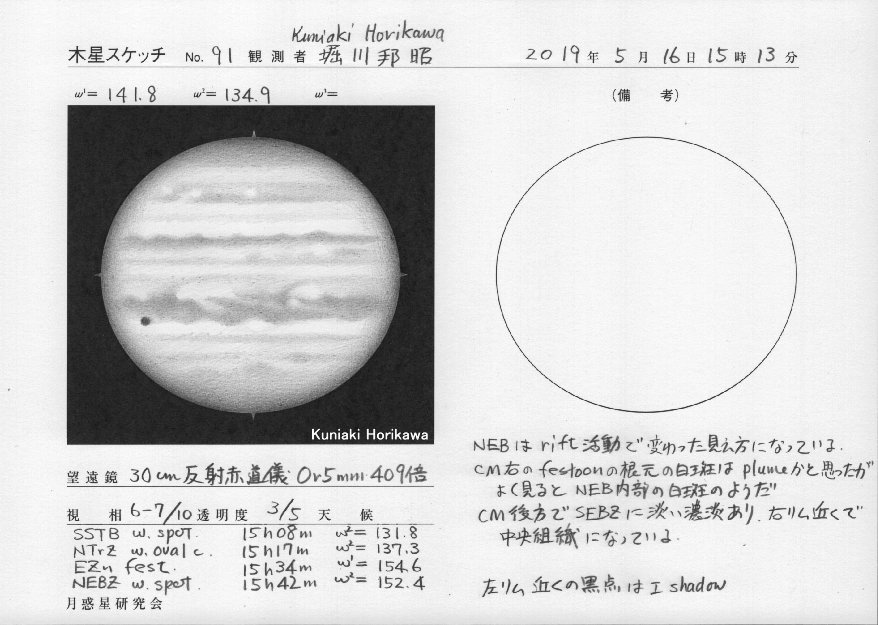 Kuniaki Horikawa
木星スケッチ No. 91 観測者 堀川邦昭 2019年 5月 16日 15時 13分
ω¹= 141.8 ω²= 134.9 ω³=
(備 考)
Kuniaki Horikawa
望遠鏡 30cm反射赤道儀 Or5mm 409倍
視相 6-7/10 透明度 3/5 天候
SSTB w. spot. 15h08m ω²= 131.8
NTrZ w. oval c. 15h17m ω²= 137.3
EZn fest. 15h34m ω¹= 154.6
NEBZ w. spot 15h42m ω²= 152.4
月惑星研究会
NEBは rift活動で変わった見え方になっている.
CM右のfestoonの根元の白斑はplumeかと思ったが
よく見ると NEB内部の白斑のようだ
CM後方で SEBZに淡い濃淡あり. 右リム近くで
中央組織になっている.
左リム近くの黒点は I shadow